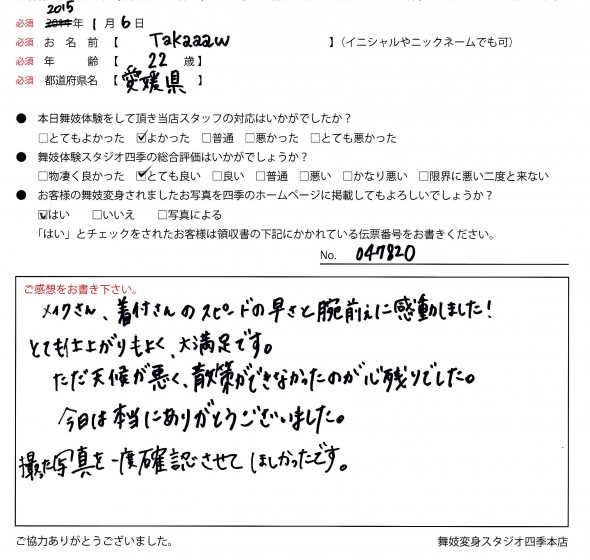 2015
必須 年 1 月 6 日
必須 お 名 前 【 Takaaaw 】(イニシャルやニックネームでも可)
必須 年 齢 【 22 歳】
必須 都道府県名 【 愛媛県 】
● 本日舞妓体験をして頂き当店スタッフの対応はいかがでしたか?
□とてもよかった ☑よかった □普通 □悪かった □とても悪かった
● 舞妓体験スタジオ四季の総合評価はいかがでしょうか?
□物凄く良かった ☑とても良い □良い □普通 □悪い □かなり悪い □限界に悪い二度と来ない
● お客様の舞妓変身されましたお写真を四季のホームページに掲載してもよろしいでしょうか?
☑はい □いいえ □写真による
「はい」とチェックをされたお客様は領収書の下記にかかれている伝票番号をお書きください。
No. 047820
ご感想をお書き下さい。
メイクさん、着付さんのスピードの早さと腕前えに感動しました!
とても仕上がりもよく、大満足です。
ただ天候が悪く、散策ができなかったのが心残りでした。
今日は本当にありがとうございました。
撮った写真を一度確認させてほしかったです。
ご協力ありがとうございました。
舞妓変身スタジオ四季本店